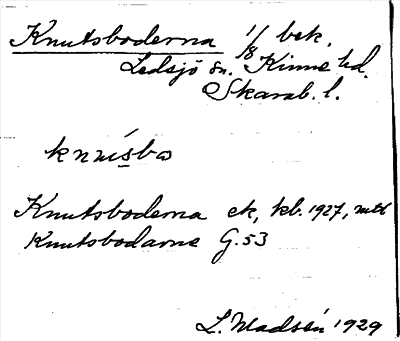 Knutsboderna 1/8 bek.
Ledsjö sn. Kinne hd.
Skarab. l.
knuısba
Knutsboderna ek, kb. 1927, mtl
Knutsbodarne G.53
1929